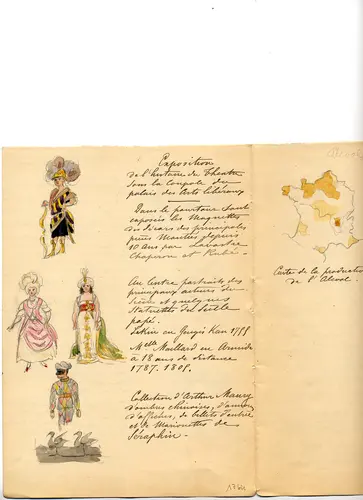 Exposition
de l'histoire du Théatre
dans la Coupole du
palais des Arts libéraux
Dans le pourtour sont
exposés les Maquettes
de décors des principales
pièces montées depuis
10 ans par Lavastre
Chaperon et Rubé.
Au Centre portraits des
principaux acteurs du
siècle et quelques
Statuettes du
Lekain en Gengis Kan 1755
Melle Maillard en Armide
à 18 ans de distance
1787. 1805.
Collection d'Arthur Maury
d'ombres chinoises,
d'affiches, de billets d'entrée
et de Marionettes de
Séraphin.
Carte de la production
de l'Alcool.
1764